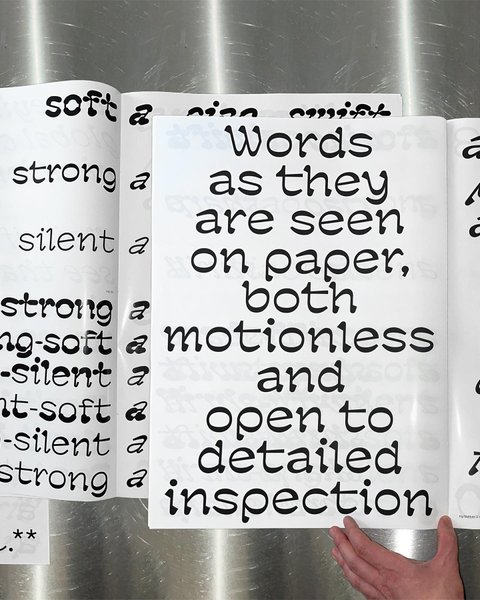 soft
strong
silent
strong
ng-soft
-silent
nt-soft
-silent
strong
.**
a
a
a
a
a
a
a
a
a
Words
as they
are seen
on paper,
both
motionless
and
open to
detailed
inspection